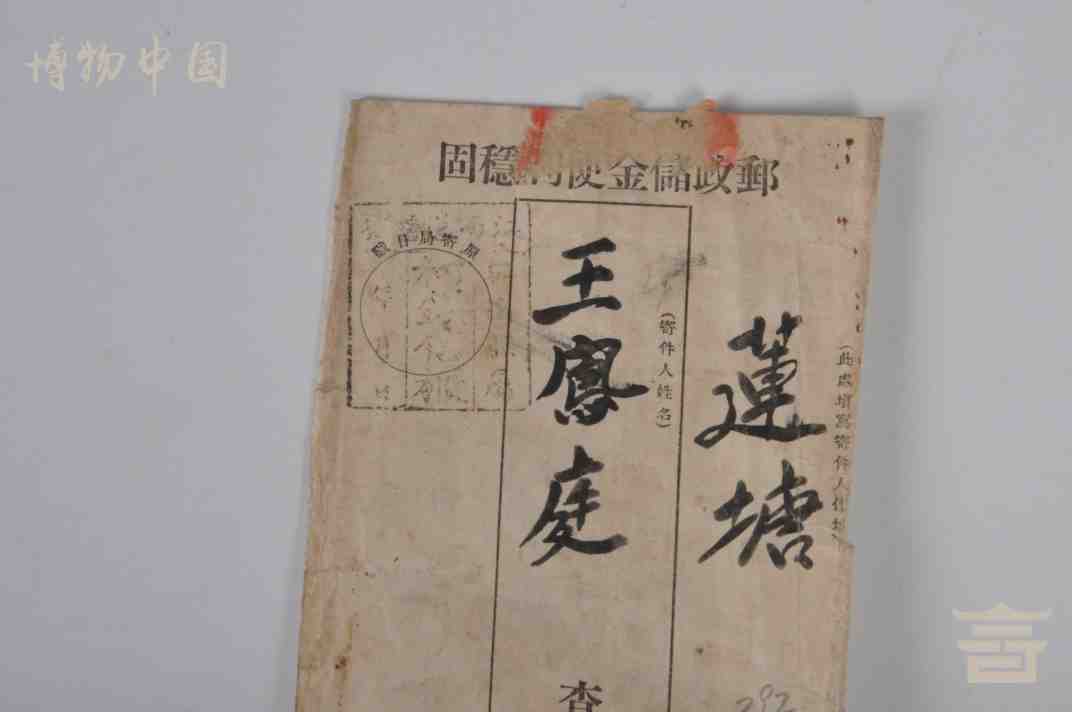 博物中国
郵政儲金便利穩固
(此處填寫寄件人住址)
蓮塘
(寄件人姓名)
王鳳庭
查
原寄局日戳
292